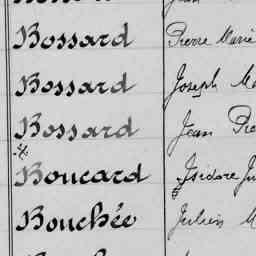 Bossard Pierre Marie
Bossard Joseph
Bossard Jean
Boucard Isidore
Bouchée Julien